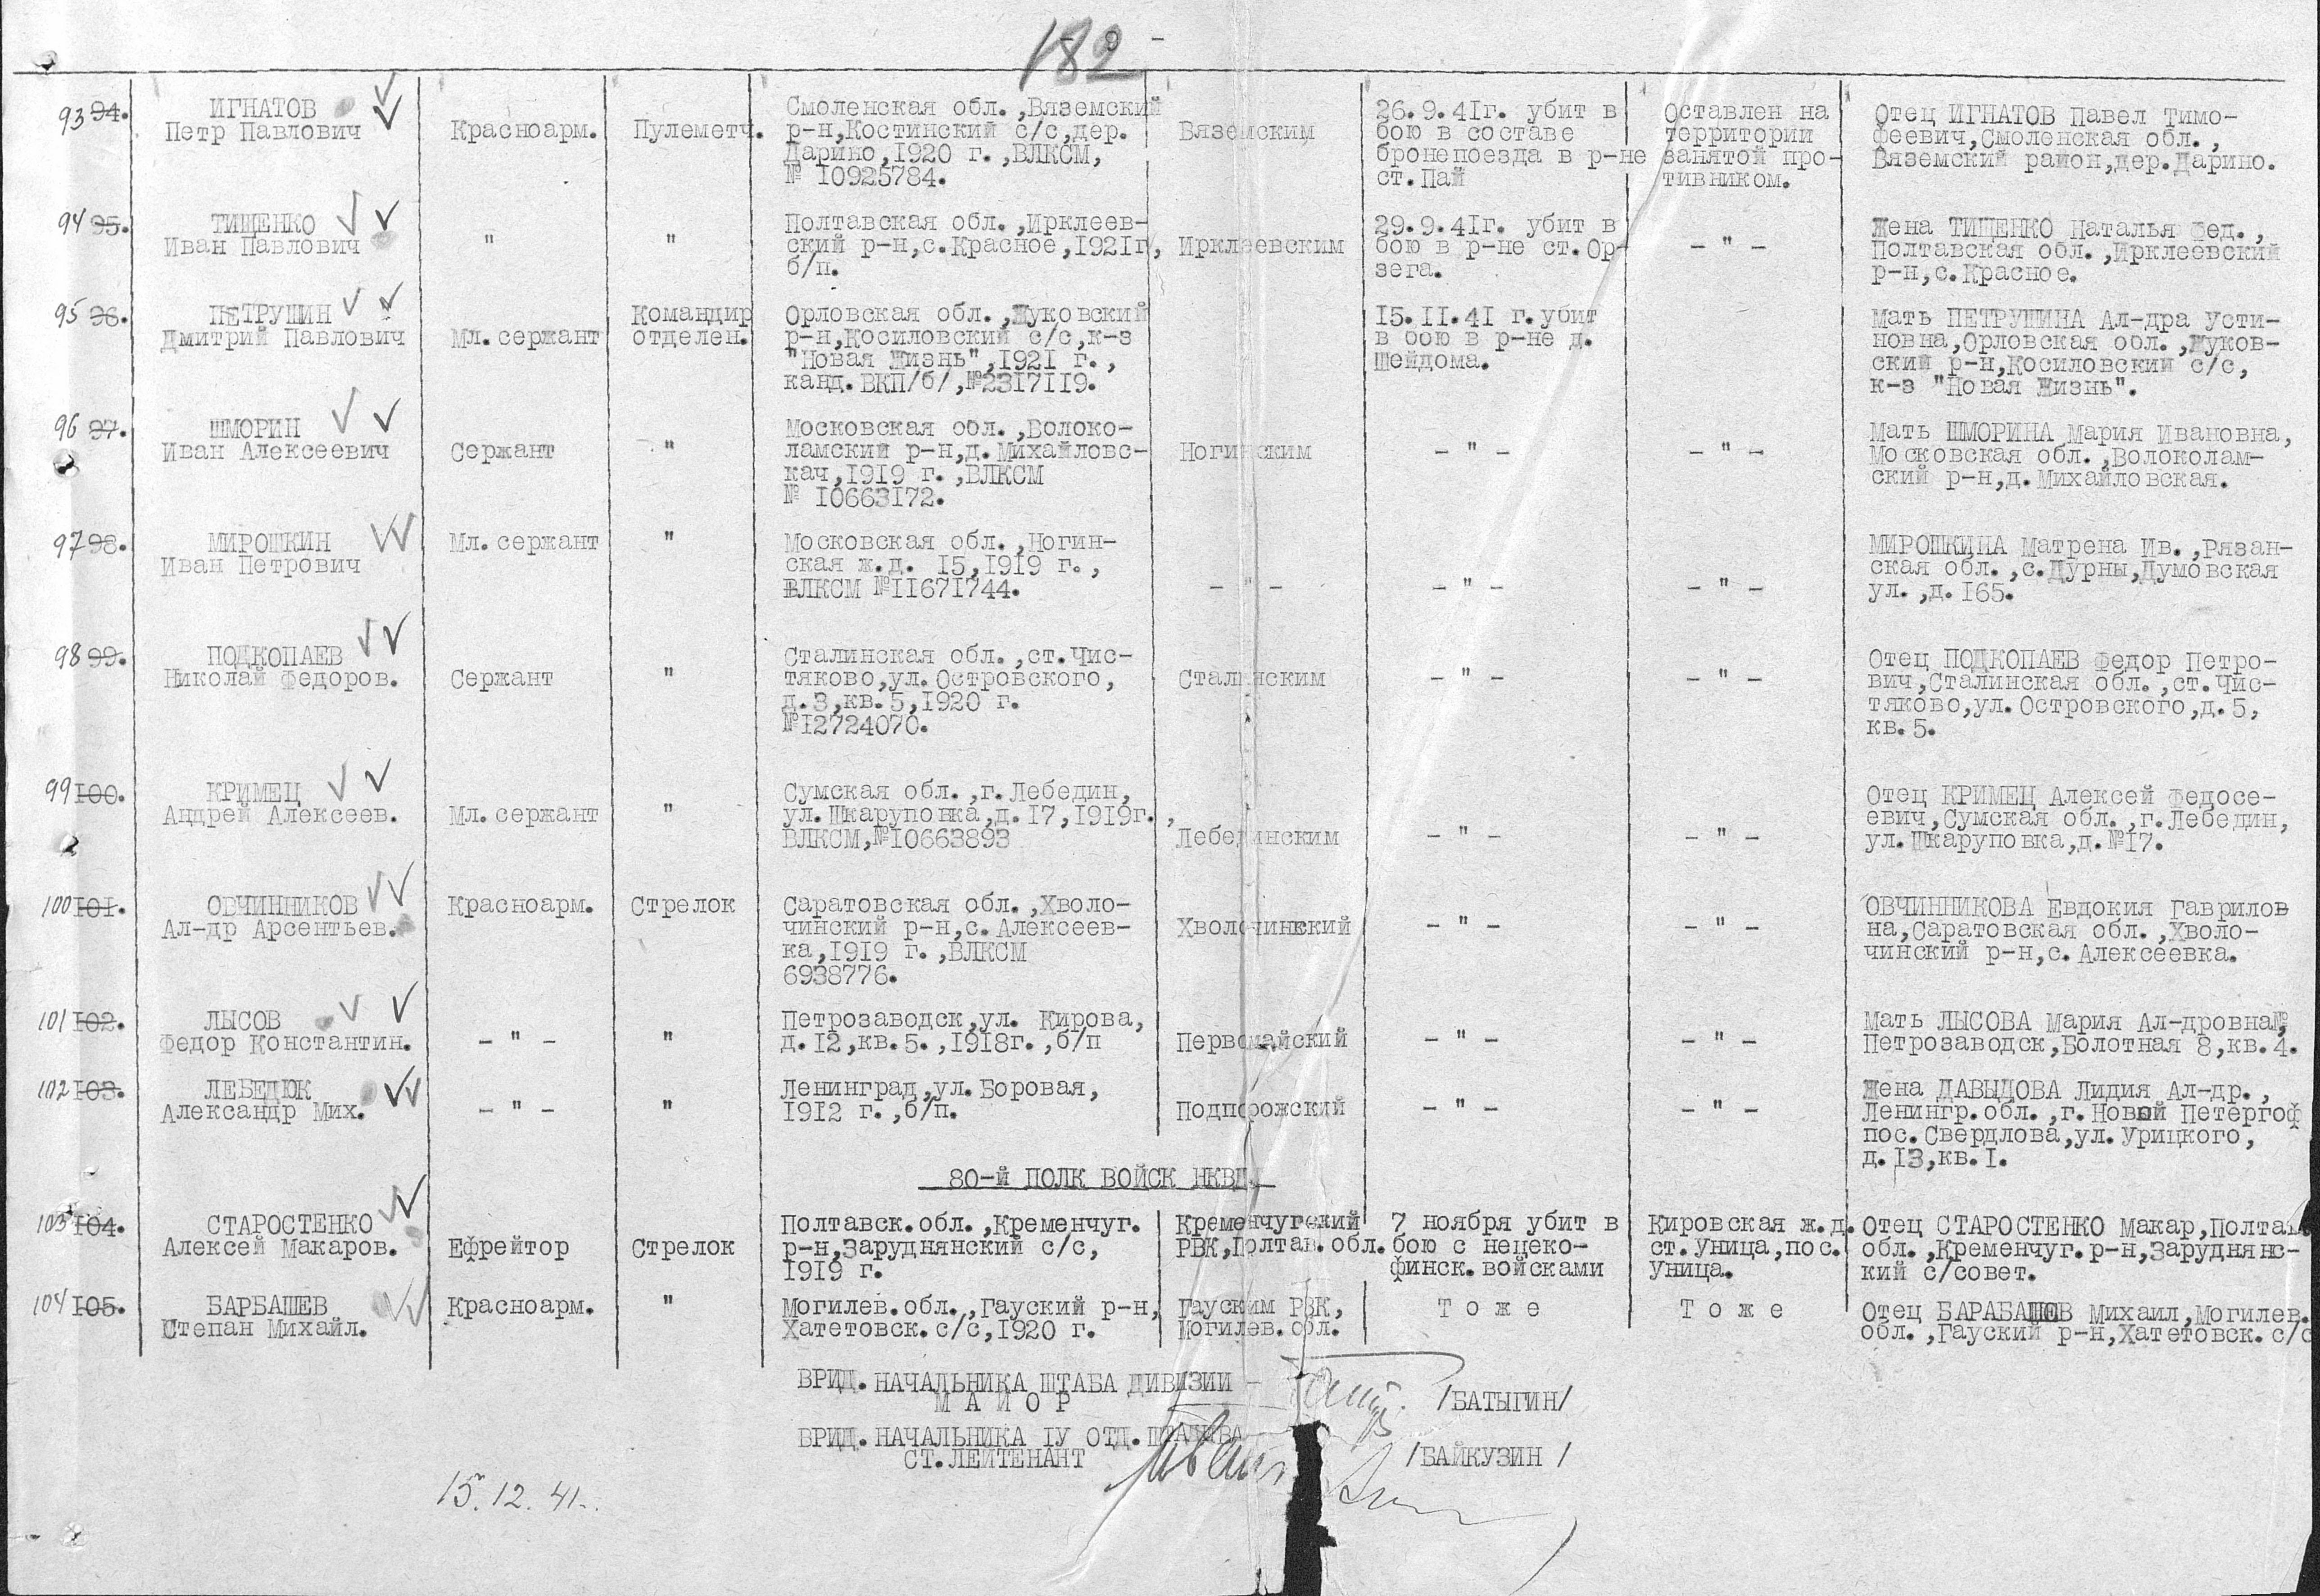 182
- 9 -
93 94. ИГНАТОВ
Петр Павлович
Красноарм.
Пулеметч.
Смоленская обл.,Вяземский
р-н,Костинский с/с,дер.
Дарино,1920 г.,ВЛКСМ,
№ 10925784.
Вяземским
26.9.41г. убит в
бою в составе
бронепоезда в р-не
ст.Пай
Оставлен на
территории
занятой про-
тивником.
Отец ИГНАТОВ Павел Тимо-
феевич,Смоленская обл.,
Вяземский район,дер.Дарино.
94 95. ТИЩЕНКО
Иван Павлович
"
"
Полтавская обл.,Ирклеев-
ский р-н,с.Красное,1921г,
б/п.
Ирклеевским
29.9.41г. убит в
бою в р-не ст.Ор-
зега.
- " -
Жена ТИЩЕНКО Наталья Фед.,
Полтавская обл.,Ирклеевский
р-н,с.Красное.
95 96. ПЕТРУШИН
Дмитрий Павлович
Мл.сержант
Командир
отделен.
Орловская обл.,Жуковский
р-н,Косиловский с/с,к-з
"Новая Жизнь",1921 г.,
канд.ВКП/б/,№2317119.
15.11.41 г.убит
в бою в р-не д.
Шейдома.
Мать ПЕТРУШИНА Ал-дра Усти-
новна,Орловская обл.,Жуков-
ский р-н,Косиловский с/с,
к-з "Новая Жизнь".
96 97. ШМОРИН
Иван Алексеевич
Сержант
"
Московская обл.,Волоко-
ламский р-н,д.Михайловс-
кач,1919 г.,ВЛКСМ
№ 10663172.
Ногинским
- " -
- " -
Мать ШМОРИНА Мария Ивановна,
Московская обл.,Волоколам-
ский р-н,д.Михайловская.
97 98. МИРОШКИН
Иван Петрович
Мл.сержант
"
Московская обл.,Ногин-
ская ж.д. 15,1919 г.,
ВЛКСМ №11671744.
- " -
- " -
- " -
МИРОШКИНА Матрена Ив.,Рязан-
ская обл.,с.Дурны,Думовская
ул.,д.165.
98 99. ПОДКОПАЕВ
Николай Федоров.
Сержант
"
Сталинская обл.,ст.Чис-
тяково,ул.Островского,
д.3,кв.5,1920 г.
№12724070.
Сталинским
- " -
- " -
Отец ПОДКОПАЕВ Федор Петро-
вич,Сталинская обл.,ст.Чис-
тяково,ул.Островского,д.5,
кв.5.
99 100. КРИМЕЦ
Андрей Алексеев.
Мл.сержант
"
Сумская обл.,г.Лебедин,
ул.Шкаруповка,д.17,1919г.,
ВЛКСМ,№10663893
Лебединским
- " -
- " -
Отец КРИМЕЦ Алексей Федосе-
евич,Сумская обл.,г.Лебедин,
ул.Шкаруповка,д.№17.
100 101. ОВЧИННИКОВ
Ал-др Арсентьев.
Красноарм.
Стрелок
Саратовская обл.,Хволо-
чинский р-н,с.Алексеев-
ка,1919 г.,ВЛКСМ
6938776.
Хволочинский
- " -
- " -
ОВЧИННИКОВА Евдокия Гаврилов
на,Саратовская обл.,Хволо-
чинский р-н,с.Алексеевка.
101 102. ЛЫСОВ
Федор Константин.
- " -
"
Петрозаводск,ул. Кирова,
д.12,кв.5.,1918г.,б/п
Первомайский
- " -
- " -
Мать ЛЫСОВА Мария Ал-дровна,
Петрозаводск,Болотная 8,кв.4.
102 103. ЛЕБЕДЮК
Александр Мих.
- " -
"
Ленинград,ул.Боровая,
1912 г.,б/п.
Подпорожский
- " -
- " -
Жена ДАВЫДОВА Лидия Ал-др.,
Ленингр.обл.,г.Новый Петергоф
пос.Свердлова,ул.Урицкого,
д.13,кв.1.
80-й ПОЛК ВОЙСК НКВД.
103 104. СТАРОСТЕНКО
Алексей Макаров.
Ефрейтор
Стрелок
Полтавск.обл.,Кременчуг.
р-н,Заруднянский с/с,
1919 г.
Кременчугский
РВК,Полтав.обл.
7 ноября убит в
бою с нецеко-
финск.войсками
Кировская ж.д.
ст.Уница,пос.
Уница.
Отец СТАРОСТЕНКО Макар,Полтав
обл.,Кременчуг.р-н,Заруднянс-
кий с/совет.
104 105. БАРБАШЕВ
Степан Михайл.
Красноарм.
"
Могилев.обл.,Гауский р-н,
Хатетовск.с/с,1920 г.
Гауским РВК,
Могилев.обл.
Т о ж е
Т о ж е
Отец БАРАБАШЕВ Михаил,Могилев.
обл.,Гауский р-н,Хатетовск.с/с
ВРИД.НАЧАЛЬНИКА ШТАБА ДИВИЗИИ -
М А Й О Р
/БАТЫГИН/
ВРИД.НАЧАЛЬНИКА IУ ОТД.ШТАДИВА
СТ.ЛЕЙТЕНАНТ
/БАЙКУЗИН /
15.12.41.